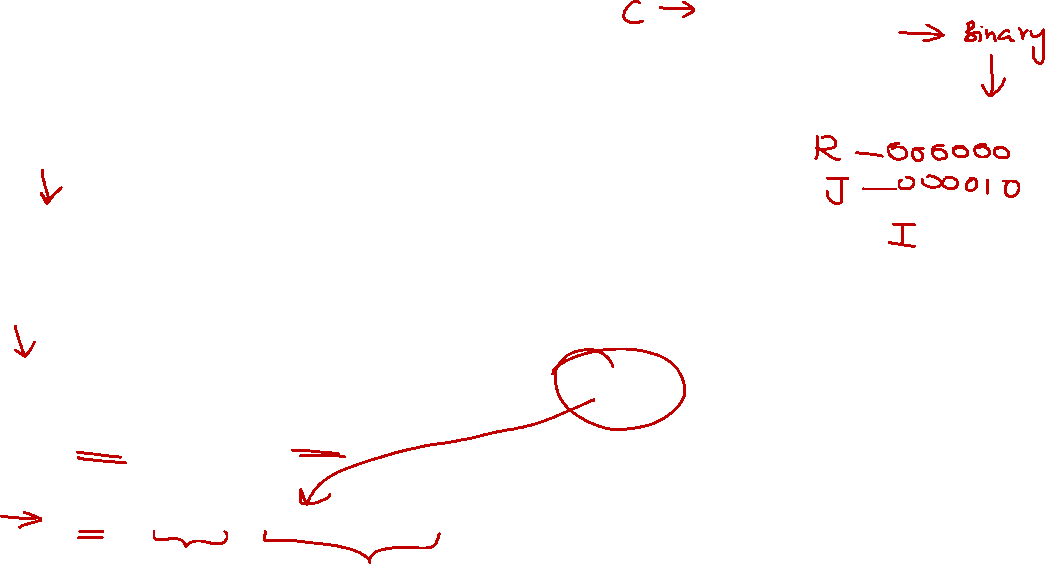 C →
→ Binary
↓
R — 000000
J — 000010
I